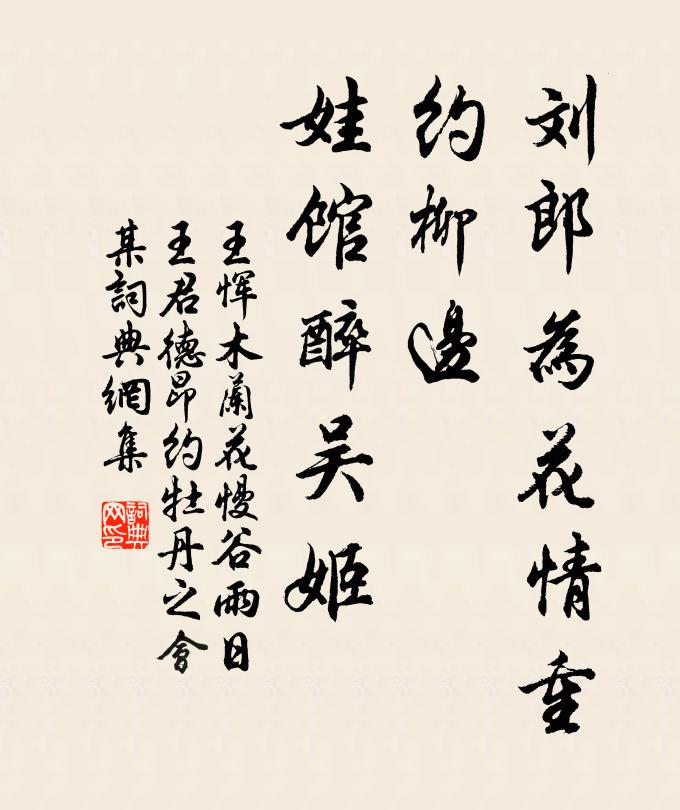 刘郎為花情重
約柳邊
娃馆醉吴姬
王恽木蘭花慢谷雨日
王君德昂约牡丹之會
某詞典網集
詞典
网印